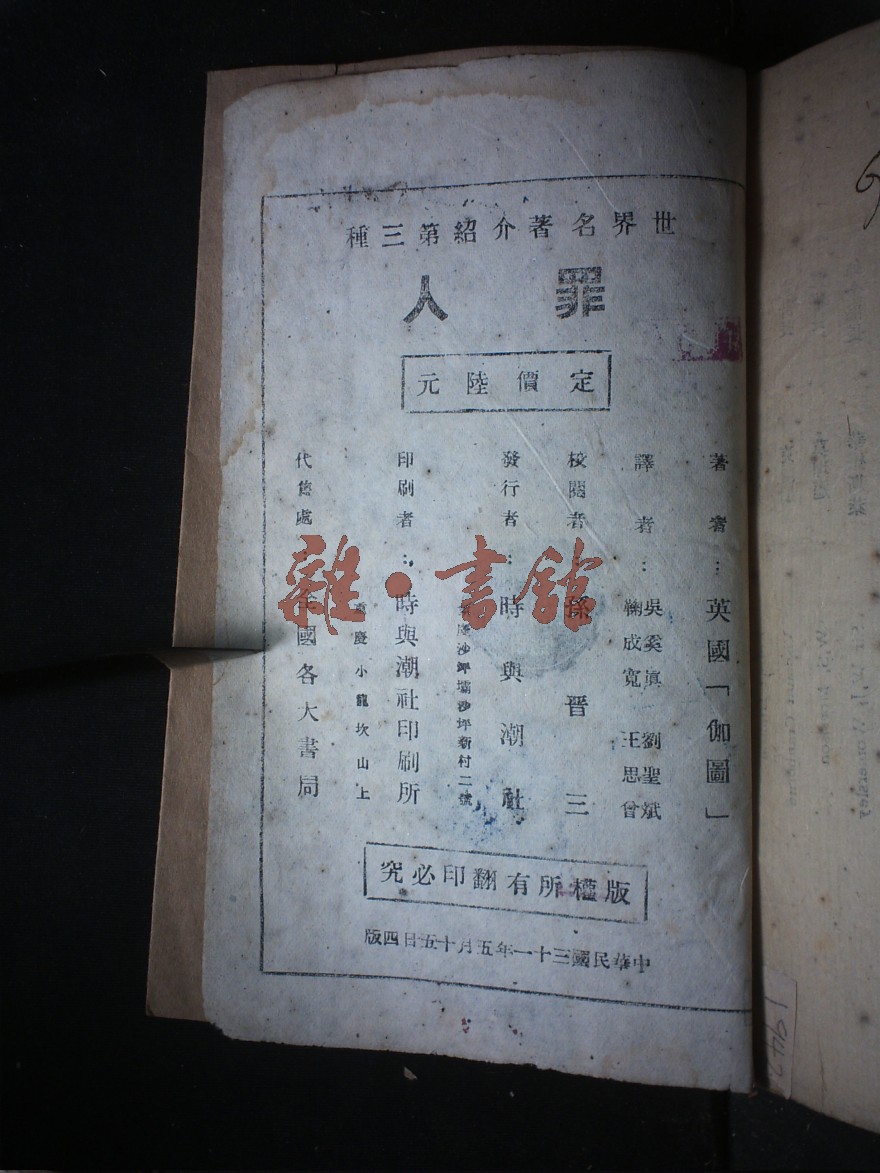 世界名著介紹第三種
罪人
定價陸元
著者：英國「伽圖」
譯者：吳奚真 劉聖斌
鞠成寬 王思曾
校閱者：孫晉三
發行者：時與潮社
重慶沙坪壩沙坪新村二號
印刷者：時與潮社印刷所
重慶小龍坎山上
代售處：全國各大書局
版權所有翻印必究
中華民國三十一年五月十五日四版
雜·書館
1942